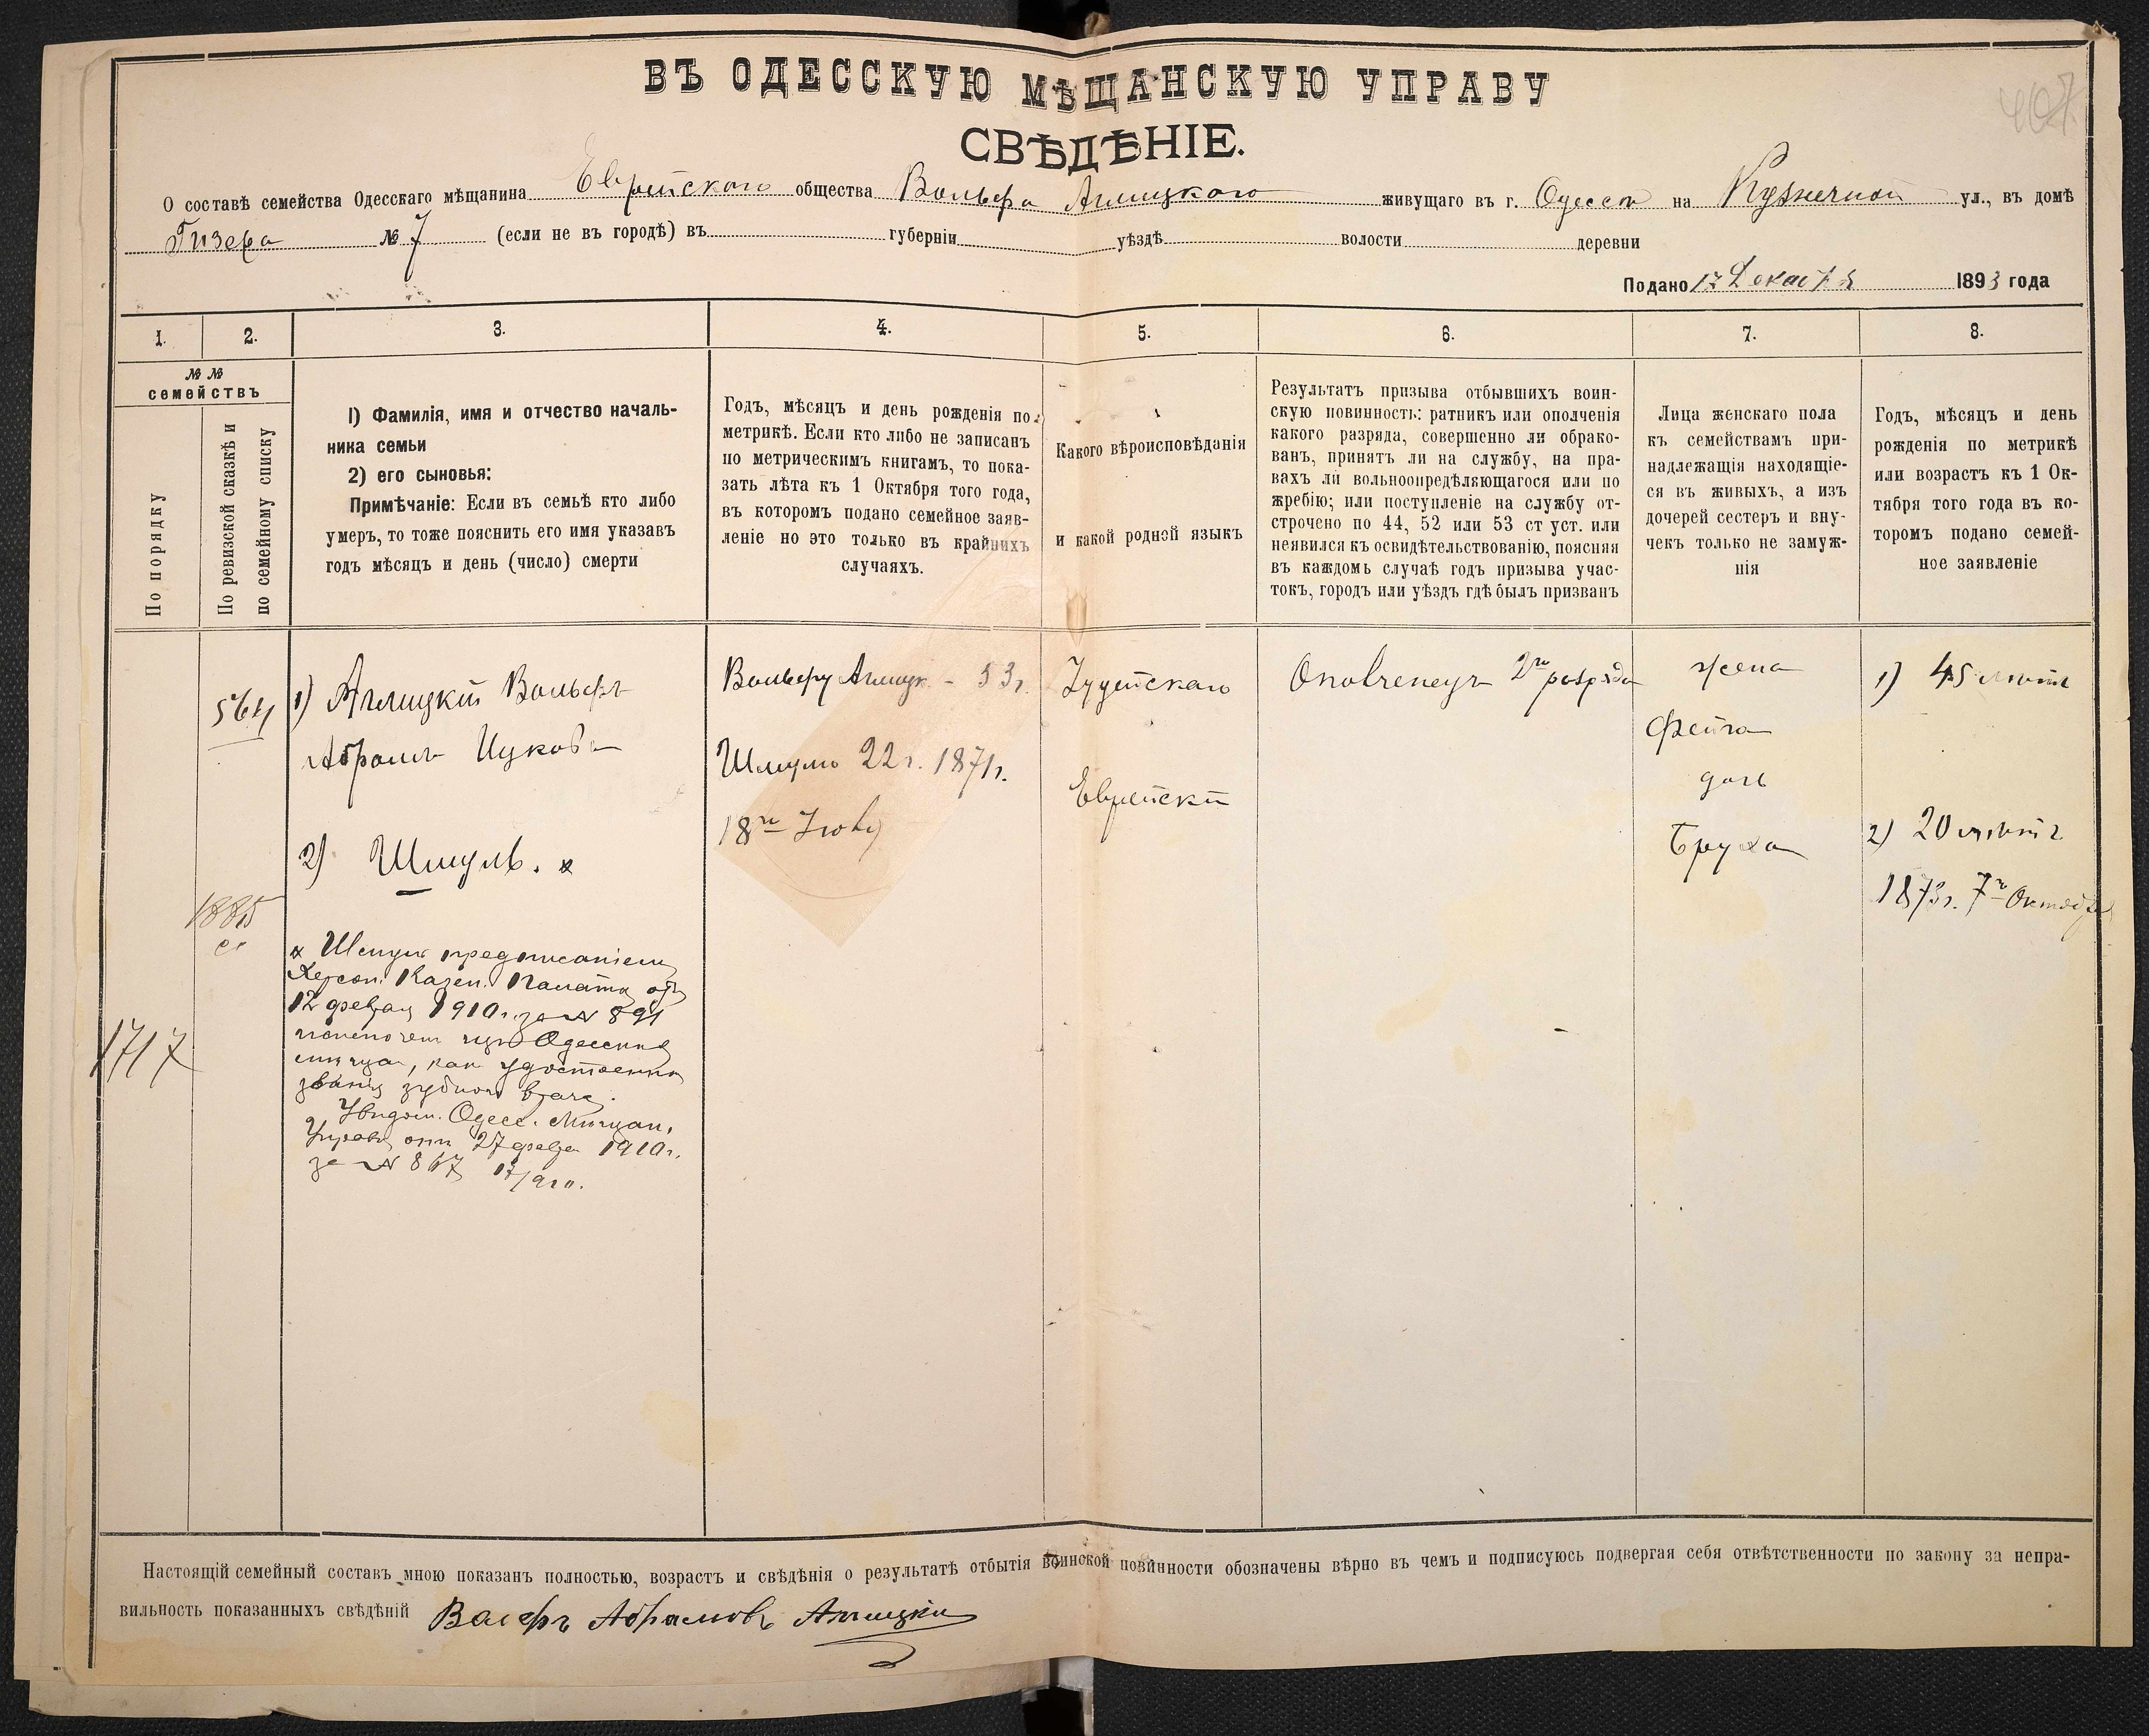 ВЪ ОДЕССКУЮ МѢЩАНСКУЮ УПРАВУ
СВѢДѢНІЕ.
О составѣ семейства Одесскаго мѣщанина Еврейскаго общества Вольфа Аглицкаго живущаго въ г. Одессѣ на Кузнечной ул., въ домѣ
Гизера № 7 (если не въ городѣ) въ губерніи уѣздѣ волости деревни
Подано 17 Декабря 1893 года
1. 2. 3. 4. 5. 6. 7. 8.
№ №
семействъ
По порядку
По ревизской сказкѣ и
по семейному списку
1) Фамилія, имя и отчество началь-
ника семьи
2) его сыновья:
Примѣчаніе: Если въ семьѣ кто либо
умеръ, то тоже пояснить его имя указавъ
годъ мѣсяцъ и день (число) смерти
Годъ, мѣсяцъ и день рожденія по
метрикѣ. Если кто либо не записанъ
по метрическимъ книгамъ, то пока-
зать лѣта къ 1 Октября того года,
въ которомъ подано семейное заяв-
леніе но это только въ крайнихъ
случаяхъ.
Какого вѣроисповѣданія
и какой родной языкъ
Результатъ призыва отбывшихъ воин-
скую повинность: ратникъ или ополченія
какого разряда, совершенно ли обрако-
ванъ, принятъ ли на службу, на пра-
вахъ ли вольноопредѣляющагося или по
жребію; или поступленіе на службу от-
строчено по 44, 52 или 53 ст уст. или
неявился къ освидѣтельствованію, поясняя
въ каждомъ случаѣ годъ призыва учас-
токъ, городъ или уѣздъ гдѣ былъ призванъ
Лица женскаго пола
къ семействамъ при-
надлежащія находящіе-
ся въ живыхъ, а изъ
дочерей сестеръ и вну-
чекъ только не замуж-
нія
Годъ, мѣсяцъ и день
рожденія по метрикѣ
или возрастъ къ 1 Ок-
тября того года въ ко-
торомъ подано семей-
ное заявленіе
564
1885
1717
1) Аглицкій Вольфъ
Абрамъ Ицковъ
2) Шмуль.
Шмуль предписаніемъ
Херсон. Казен. Палаты отъ
12 феврал 1910 г. за № 891
исключен изъ Одесских
мѣщан, как удостоенный
званія зубного врача.
Увѣдом. Одесс. Мѣщан.
Управы отъ 27 февр 1910 г.
за № 867
Вольфу Аглицк - 53 г.
Шмулю 22 г. 1871 г.
18го
Іудейскаго
Еврейскій
Ополченецъ 2го разряда
жена
Фейга
дочь
Бруха
1) 45 лѣтъ
2) 20 лѣтъ
1873 г. 7го Октября
Настоящій семейный составъ мною показанъ полностью, возрастъ и свѣдѣнія о результатѣ отбытія воинской повинности обозначены вѣрно въ чемъ и подписуюсь подвергая себя отвѣтственности по закону за непра-
вильность показанныхъ свѣдѣній Валефъ Абрамовъ Аглицки